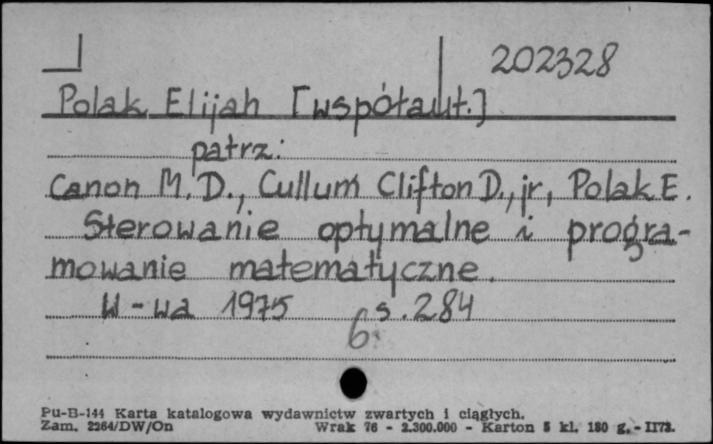 202328
Polak Elijah [współaut.]
patrz:
Canon M. D., Cullum Clifton D., jr, Polak E.
Sterowanie optymalne i progra-
mowanie matematyczne.
W-wa 1975 s. 284
6.
Pu-B-144 Karta katalogowa wydawnictw zwartych i ciągłych.
Zam. 2264/DW/On Wrak 76 - 2.300.000 - Karton 5 kl. 180 g. - II73.